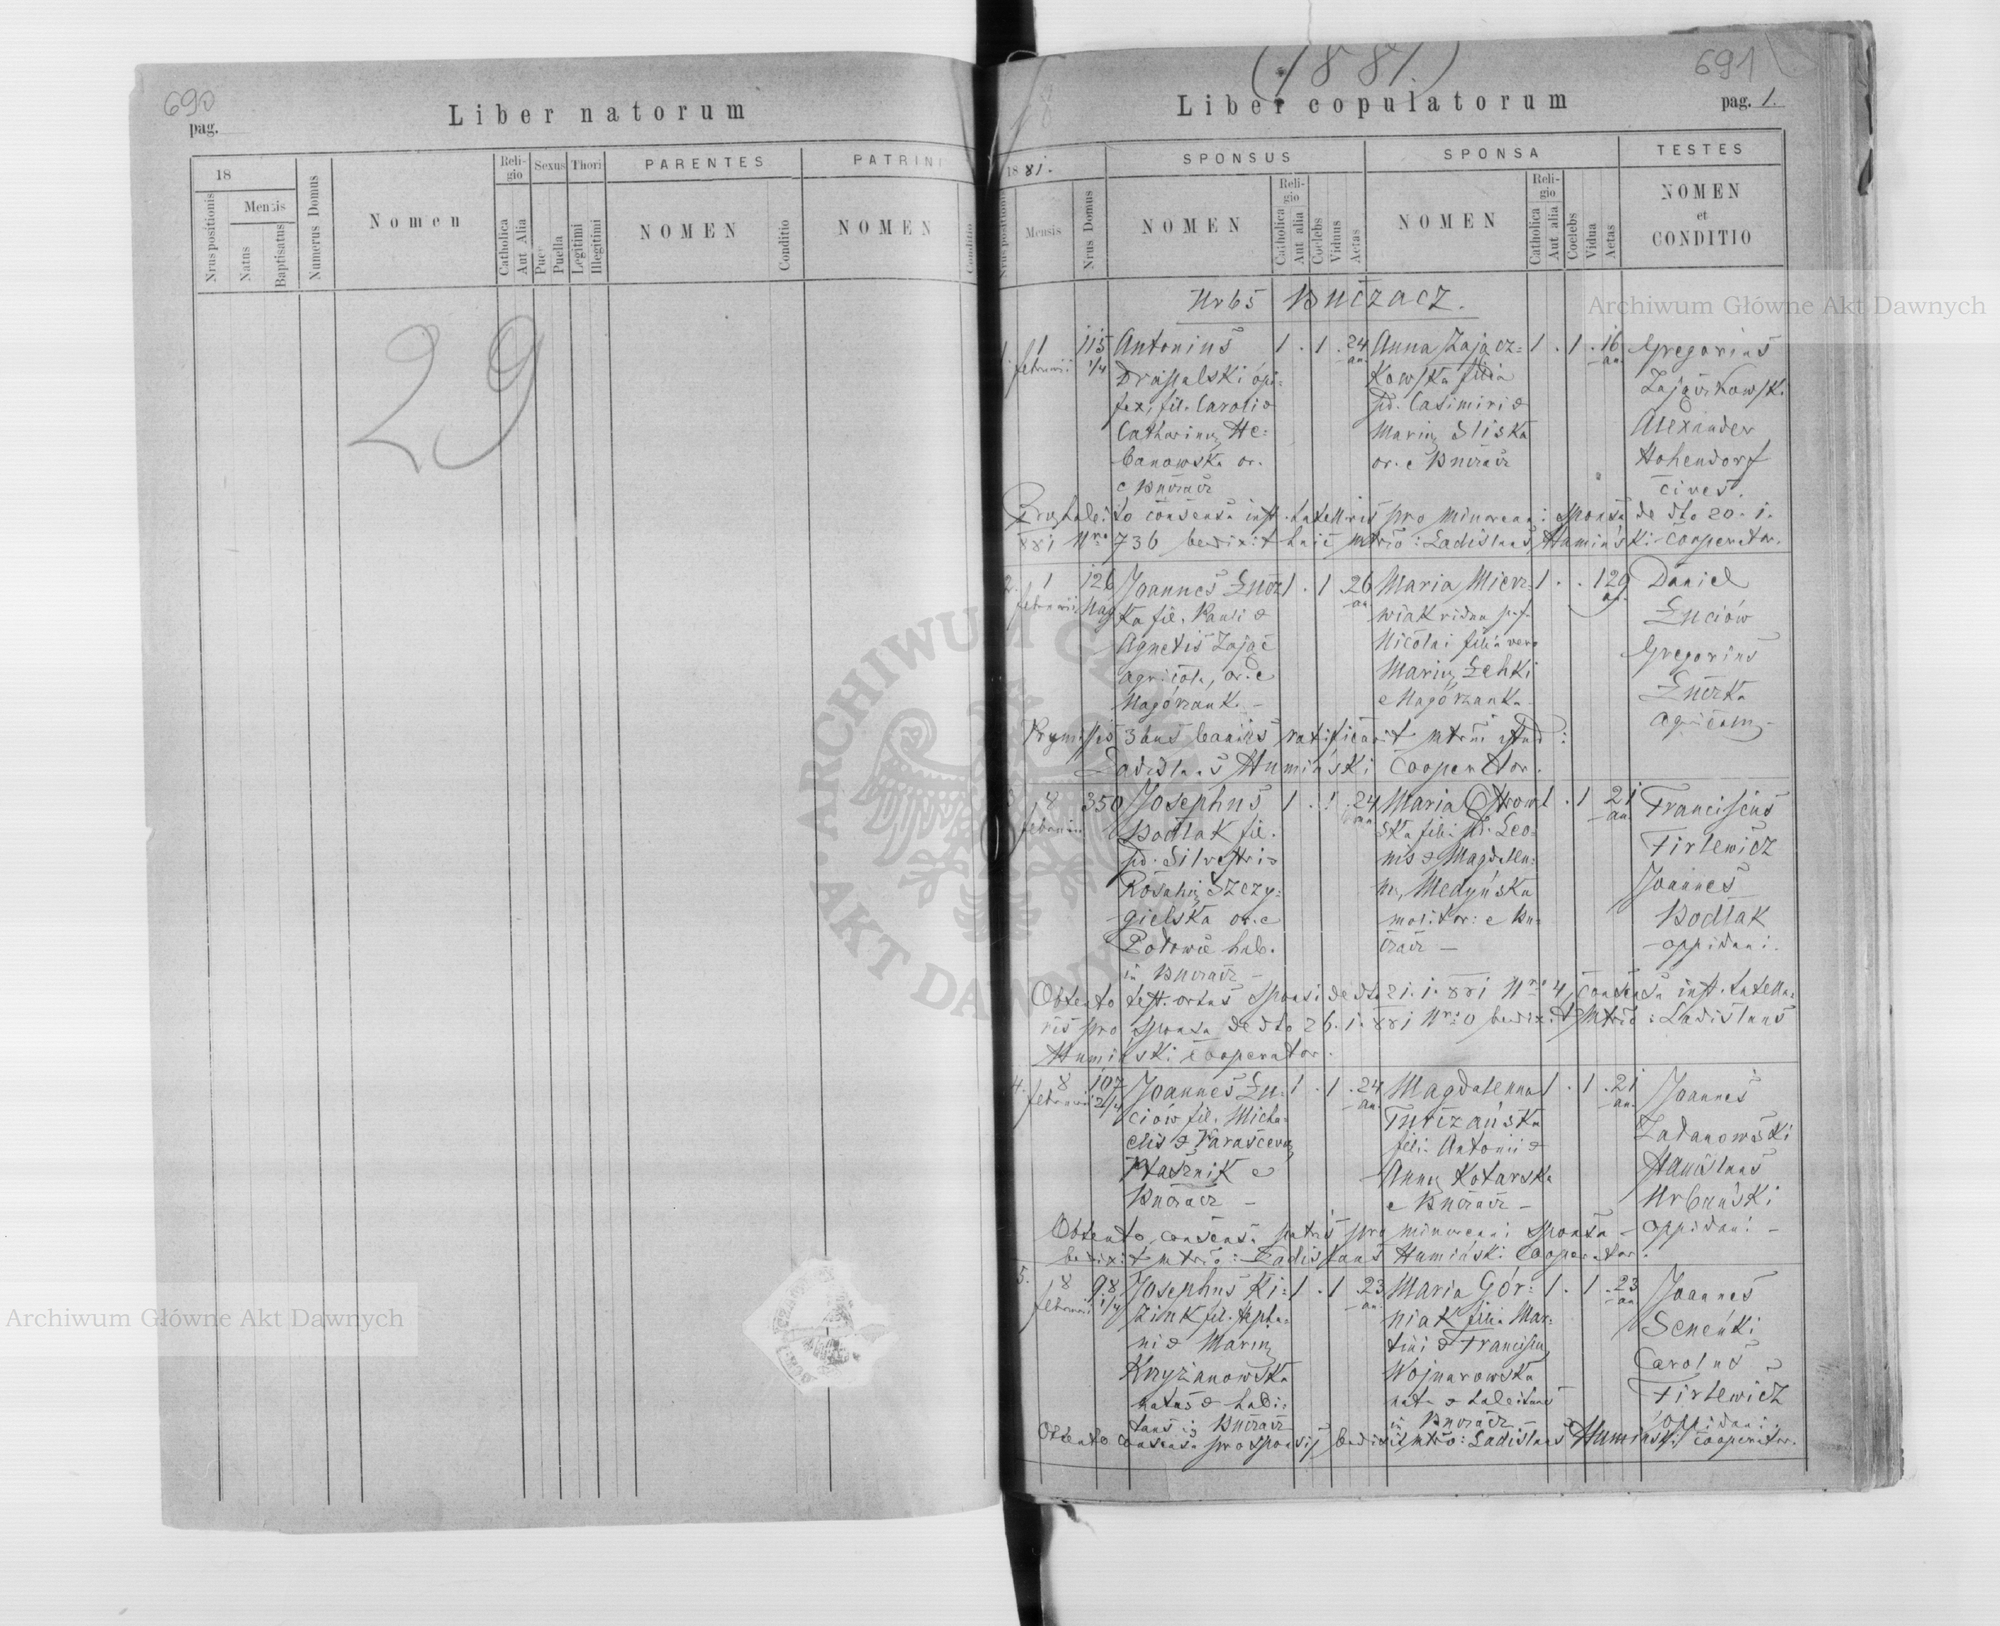 690
pag.
Liber natorum
18
Nrus positionis
Mensis
Natus
Baptisatus
Numerus Domus
Nomen
Religio
Catholica
Aut Alia
Sexus
Puer
Puella
Thori
Legitimi
Illegitimi
PARENTES
NOMEN
Conditio
PATRINI
NOMEN
Conditio
29
(1881.)
691
Liber copulatorum
pag. 1.
1881.
Nrus positionis
Mensis
Nrus Domus
SPONSUS
NOMEN
Religio
Catholica
Aut alia
Coelebs
Viduus
Aetas
SPONSA
NOMEN
Religio
Catholica
Aut alia
Coelebs
Vidua
Aetas
TESTES
NOMEN
et
CONDITIO
Urbs Buczacz.
1. 1 februarii
115 1/4
Antonius
fex, fil. Caroli &
Catharinæ He=
banowska or.
e Buczacz
1 . 1 . 24 an.
Anna Zającz=
kowska filia
pd. Casimiri &
Mariæ Sliska
or. e Buczacz
1 . 1 . 16 an.
Gregorius
Alexander
Hohendorf
cives.
736 bedixit huic mtrio: Ladislaus Humiński cooperator.
2. 1 februarii
126 Nag
Joannes Łucz=
ka fil. Pauli &
Agnetis Zając
agricola, or. e
1 . 1 . 26 an.
Maria Mierz=
wiak vidua p.
Nicolai filia vero
Mariæ Lehki
e Nagórzanka
1 . . 1 29 an.
Daniel
Łuciów
Gregorius
Łuczka
Præmissis 3bus bannis ratificavit mtrium istud:
Ladislaus Humiński Cooperator.
3. 8 februarii
350
Josephus
Bodlak fil.
pd. Silvestri &
Rosaliæ Szczy=
gielska or. e
Potowie hab.
in Buczacz
1 . 1 . 24 an.
ska filia pd. Leo=
nis & Magdale=
næ Medyńska
molitor: e Bu=
czacz
1 . 1 21 an.
Franciscus
Firlewicz
Joannes
Bodlak
oppidani.
Obtento test. ortus sponsi de dto 21.1.881 Nro 4, consensu inst. tutella=
ris pro sponsa de dto 26.1.881 Nro 0 bedixit mtrio: Ladislaus
Humiński Cooperator.
4. 8 februarii
107 2/4
Joannes Łu=
ciów fil. Micha=
elis & Parascevæ
e
Buczacz
1 . 1 . 24 an.
Magdalenna
Turczańska
filia Antonii &
Annæ Kotarska
e Buczacz
1 . 1 . 21 an.
Joannes
Zadanowski
Stanislaus
Urbański
oppidani
Obtento consensu patris pro minorenni sponsa
bedixit mtrio: Ladislaus Humiński Cooperator.
5. 8 februarii
98 1/4
Josephus Ki=
zink fil. Stepha=
ni & Mariæ
Krzyżanowska
natus & habi=
tans in Buczacz
1 . 1 . 23 an.
Maria Gór=
niak filia Mar=
tini & Franciscæ
Wojnarowska
nata & habitans
in Buczacz
1 . 1 . 23 an.
Joannes
Seneńki
Carolus
Firlewicz
oppidani.
Obtento consensu pro sponsis bedixit mtrio: Ladislaus Humiński cooperator.
Archiwum Główne Akt Dawnych
Archiwum Główne Akt Dawnych